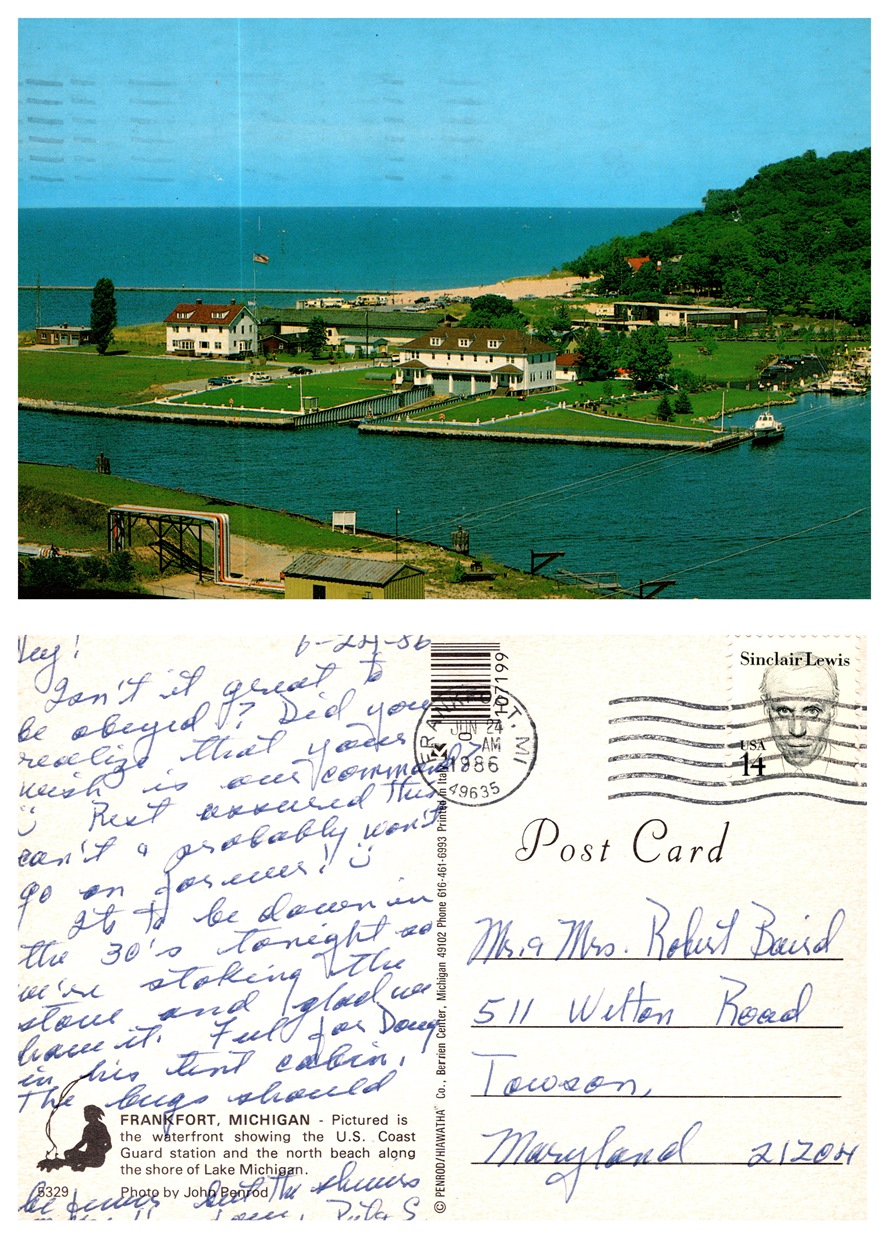 Hey! 6-24-86
Isn't it great to
be obeyed? Did you
realize that your
wish is our command?
Rest assured this
can't & probably won't
go on forever!
It's to be down in
the 30's tonight so
we're stoking the
stove and glad we
have it. Feel for Doug
in his tent cabin.
The bugs should
be fewer but the
FRANKFORT, MICHIGAN - Pictured is
the waterfront showing the U.S. Coast
Guard station and the north beach along
the shore of Lake Michigan.
5329 Photo by John Penrod
© PENROD/HIAWATHA Co., Berrien Center, Michigan 49102 Phone 616-461-6993 Printed in Italy
107199
FRANKFORT, MI
JUN 24
AM
1986
49635
Sinclair Lewis
USA
14
Post Card
Mr. & Mrs. Robert Baird
511 Wilton Road
Towson,
Maryland 21204